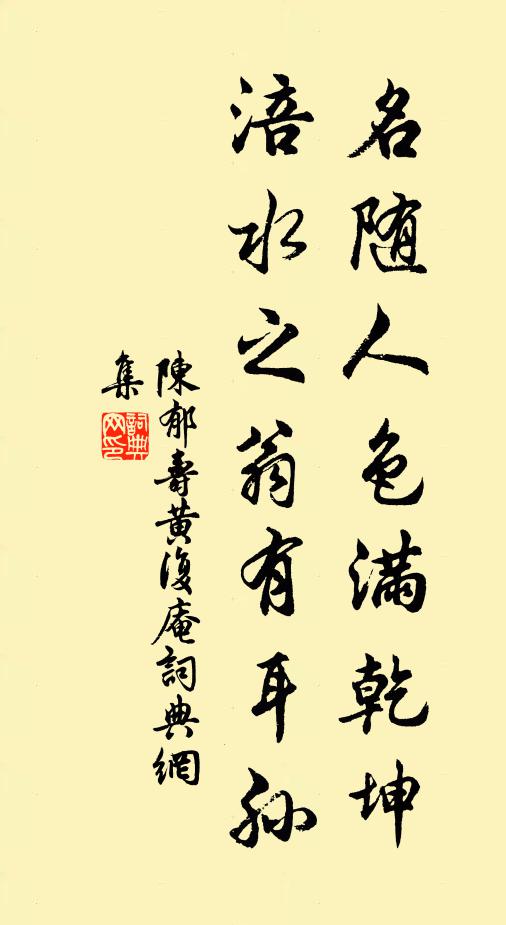 名随人色满乾坤
涪水之翁有耳孙
陳郁壽黄復庵詞典網
集
詞典网印